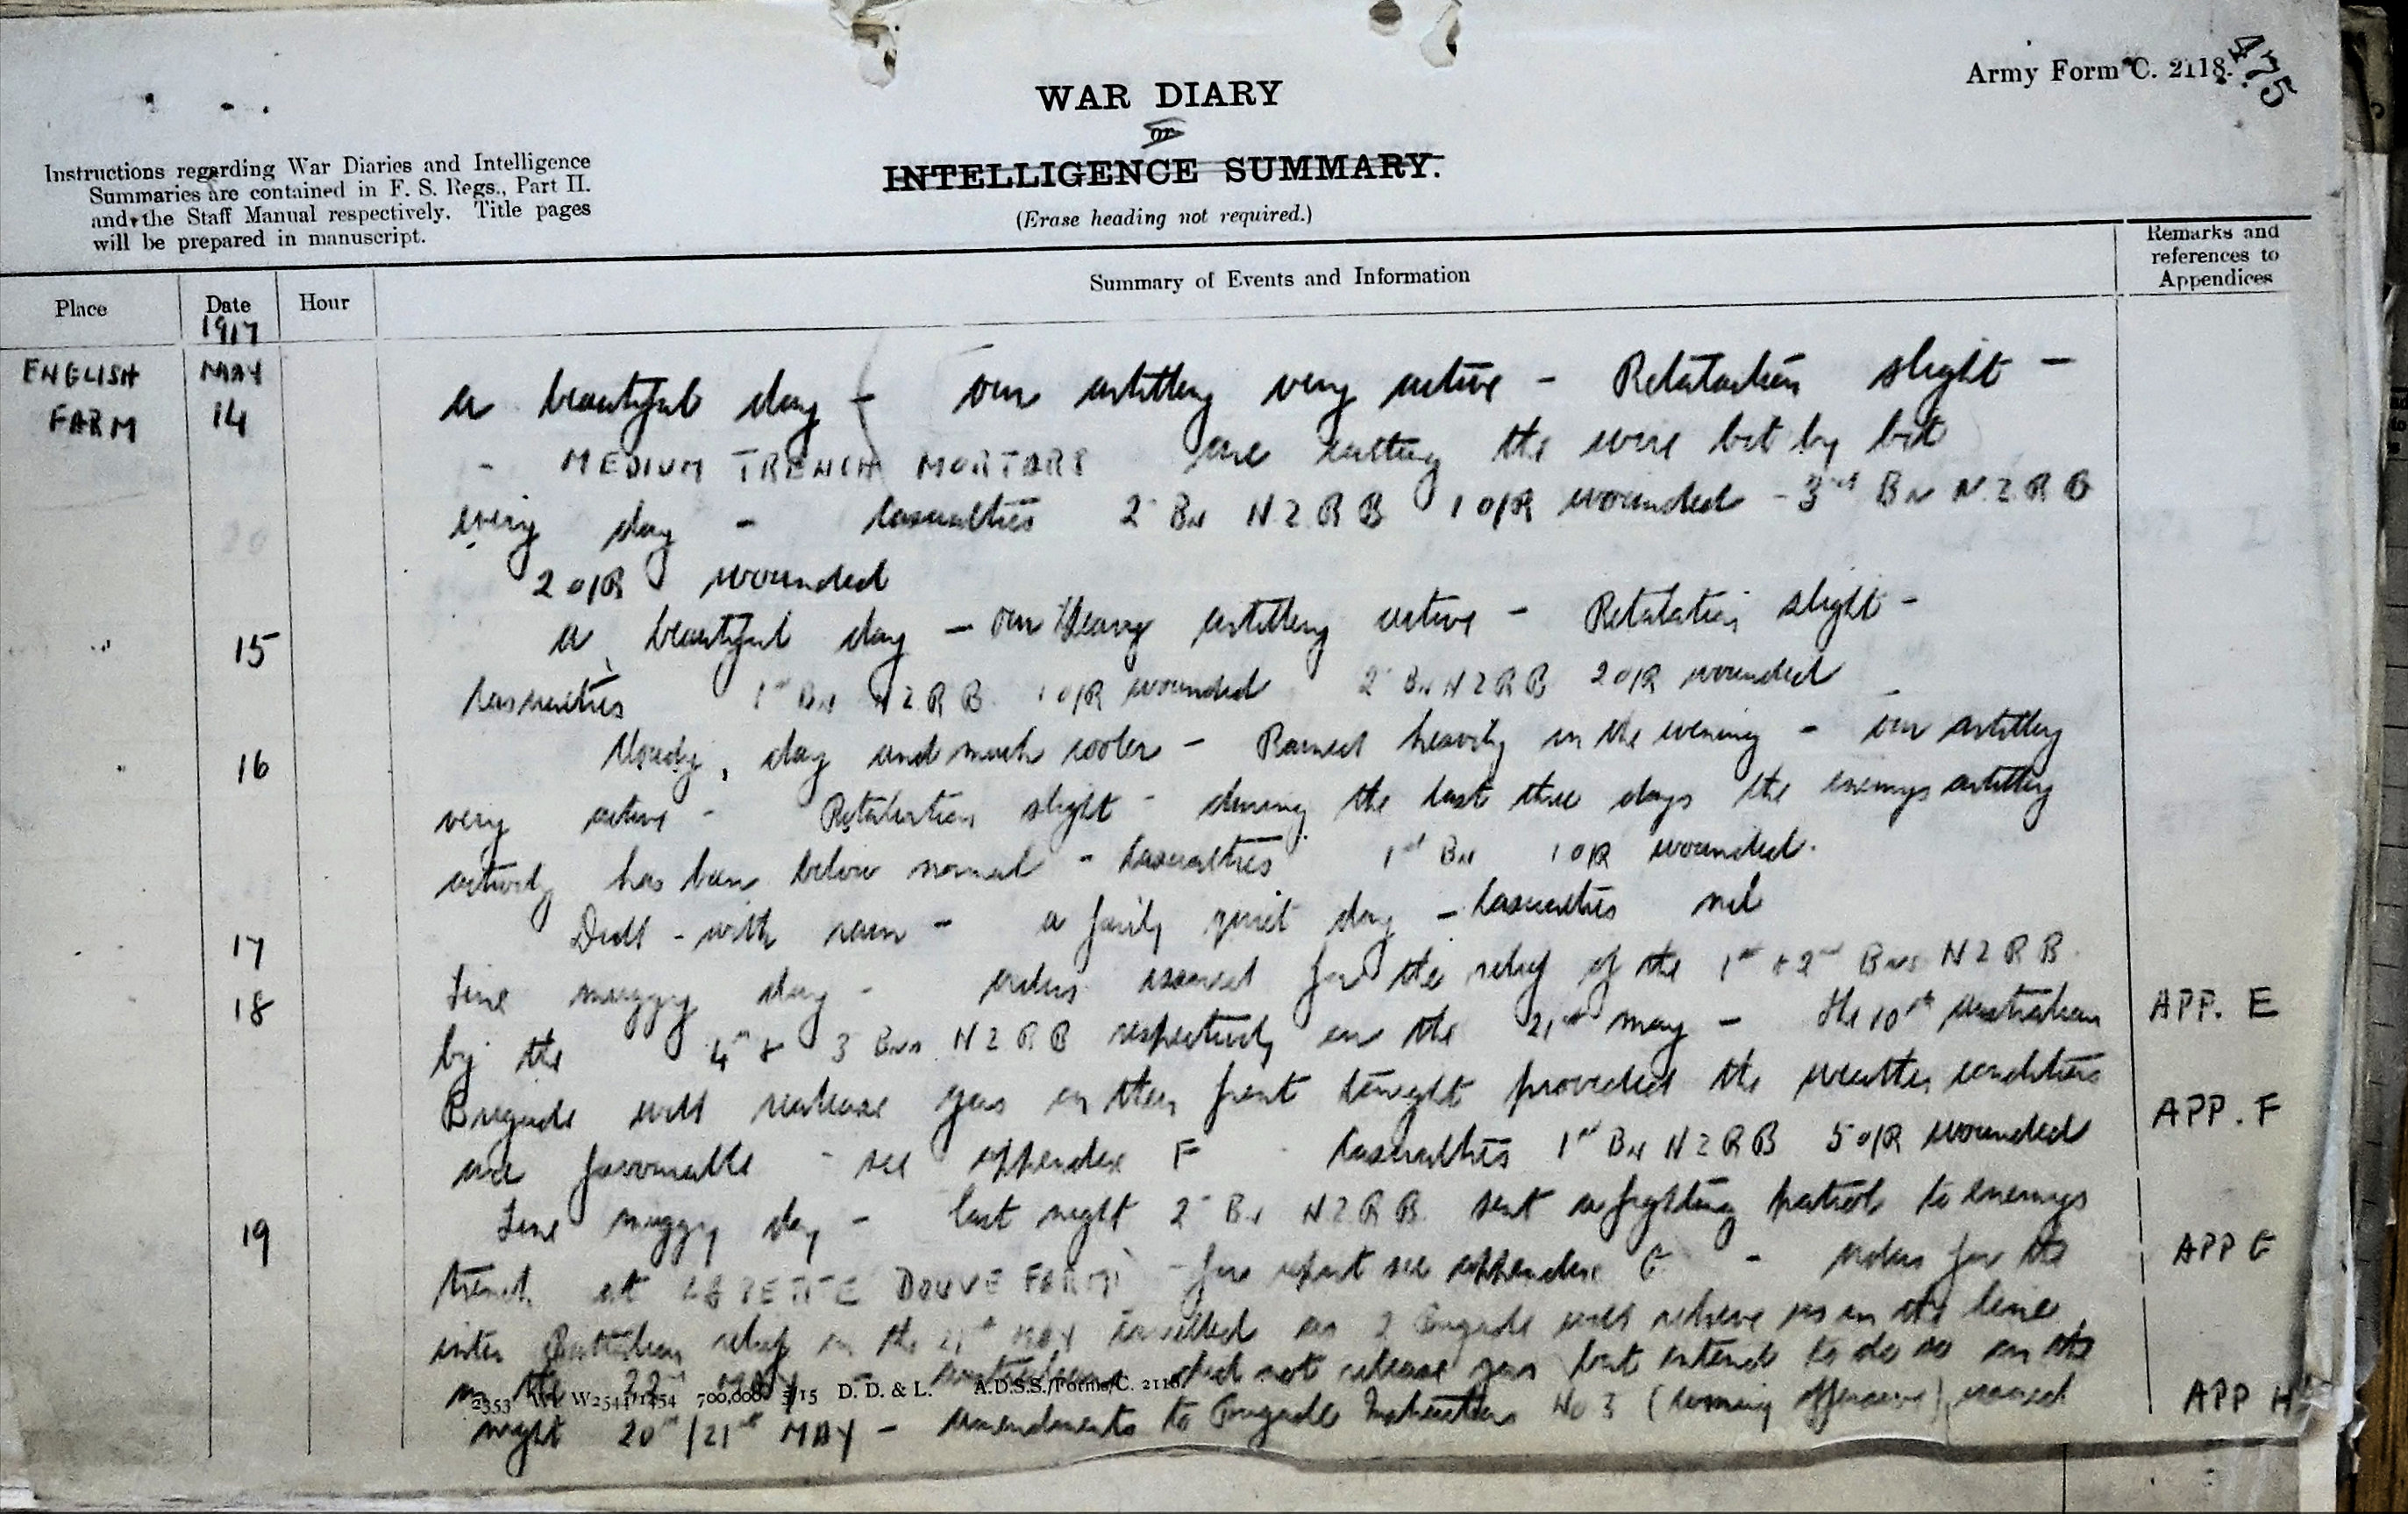 Army Form C. 2118.
475
WAR DIARY
or
INTELLIGENCE SUMMARY.
(Erase heading not required.)
Instructions regarding War Diaries and Intelligence
Summaries are contained in F. S. Regs., Part II.
and the Staff Manual respectively. Title pages
will be prepared in manuscript.
Place Date Hour Summary of Events and Information Remarks and references to Appendices
1917
ENGLISH MAY
FARM 14 a beautiful day - our artillery very active - Retaliation slight -
- MEDIUM TRENCH MORTARS are cutting the wire bit by bit
every day - Casualties 2 Bn N.Z.R.B 1 O/R wounded - 3rd Bn N.Z.R.B
2 O/R wounded
" 15 a beautiful day - our Heavy artillery active - Retaliation slight -
Casualties 1st Bn N Z R B. 1 O/R wounded 2 Bn N Z R B 2 O/R wounded -
16 Cloudy, day and much cooler - Rained heavily in the evening - our artillery
very active - Retaliation slight - during the last three days the enemys artillery
activity has been below normal - Casualties 1st Bn 1 O/R wounded.
17 Dull - with rain - a fairly quiet day - Casualties nil
18 Fine muggy day - orders issued for the relief of the 1st & 2nd Bns N Z R B. APP. E
by the 4th & 3 Bns N Z R B respectively on the 21st May - the 10th Australian
Brigade will release gas on their front tonight provided the weather conditions APP. F
are favourable - see appendix F - Casualties 1st Bn N Z R B 5 O/R wounded
19 Fine muggy day - last night 2 Bn N Z R B. sent a fighting patrol to enemys
trench at LA PETITE DOUVE FARM - for report see appendix G - orders for the APP G
inter Battalion relief on the 21st MAY cancelled as 2 Brigade will relieve us in the line
on the 22nd MAY - did not release gas but intend to do so on the
2353 Wt W2544/1454 700,000 5/15 D. D. & L. A.D.S.S./Forms/C. 2118.
night 20th/21st MAY - amendments to Brigade Instructions No 3 (coming offensive) issued APP H